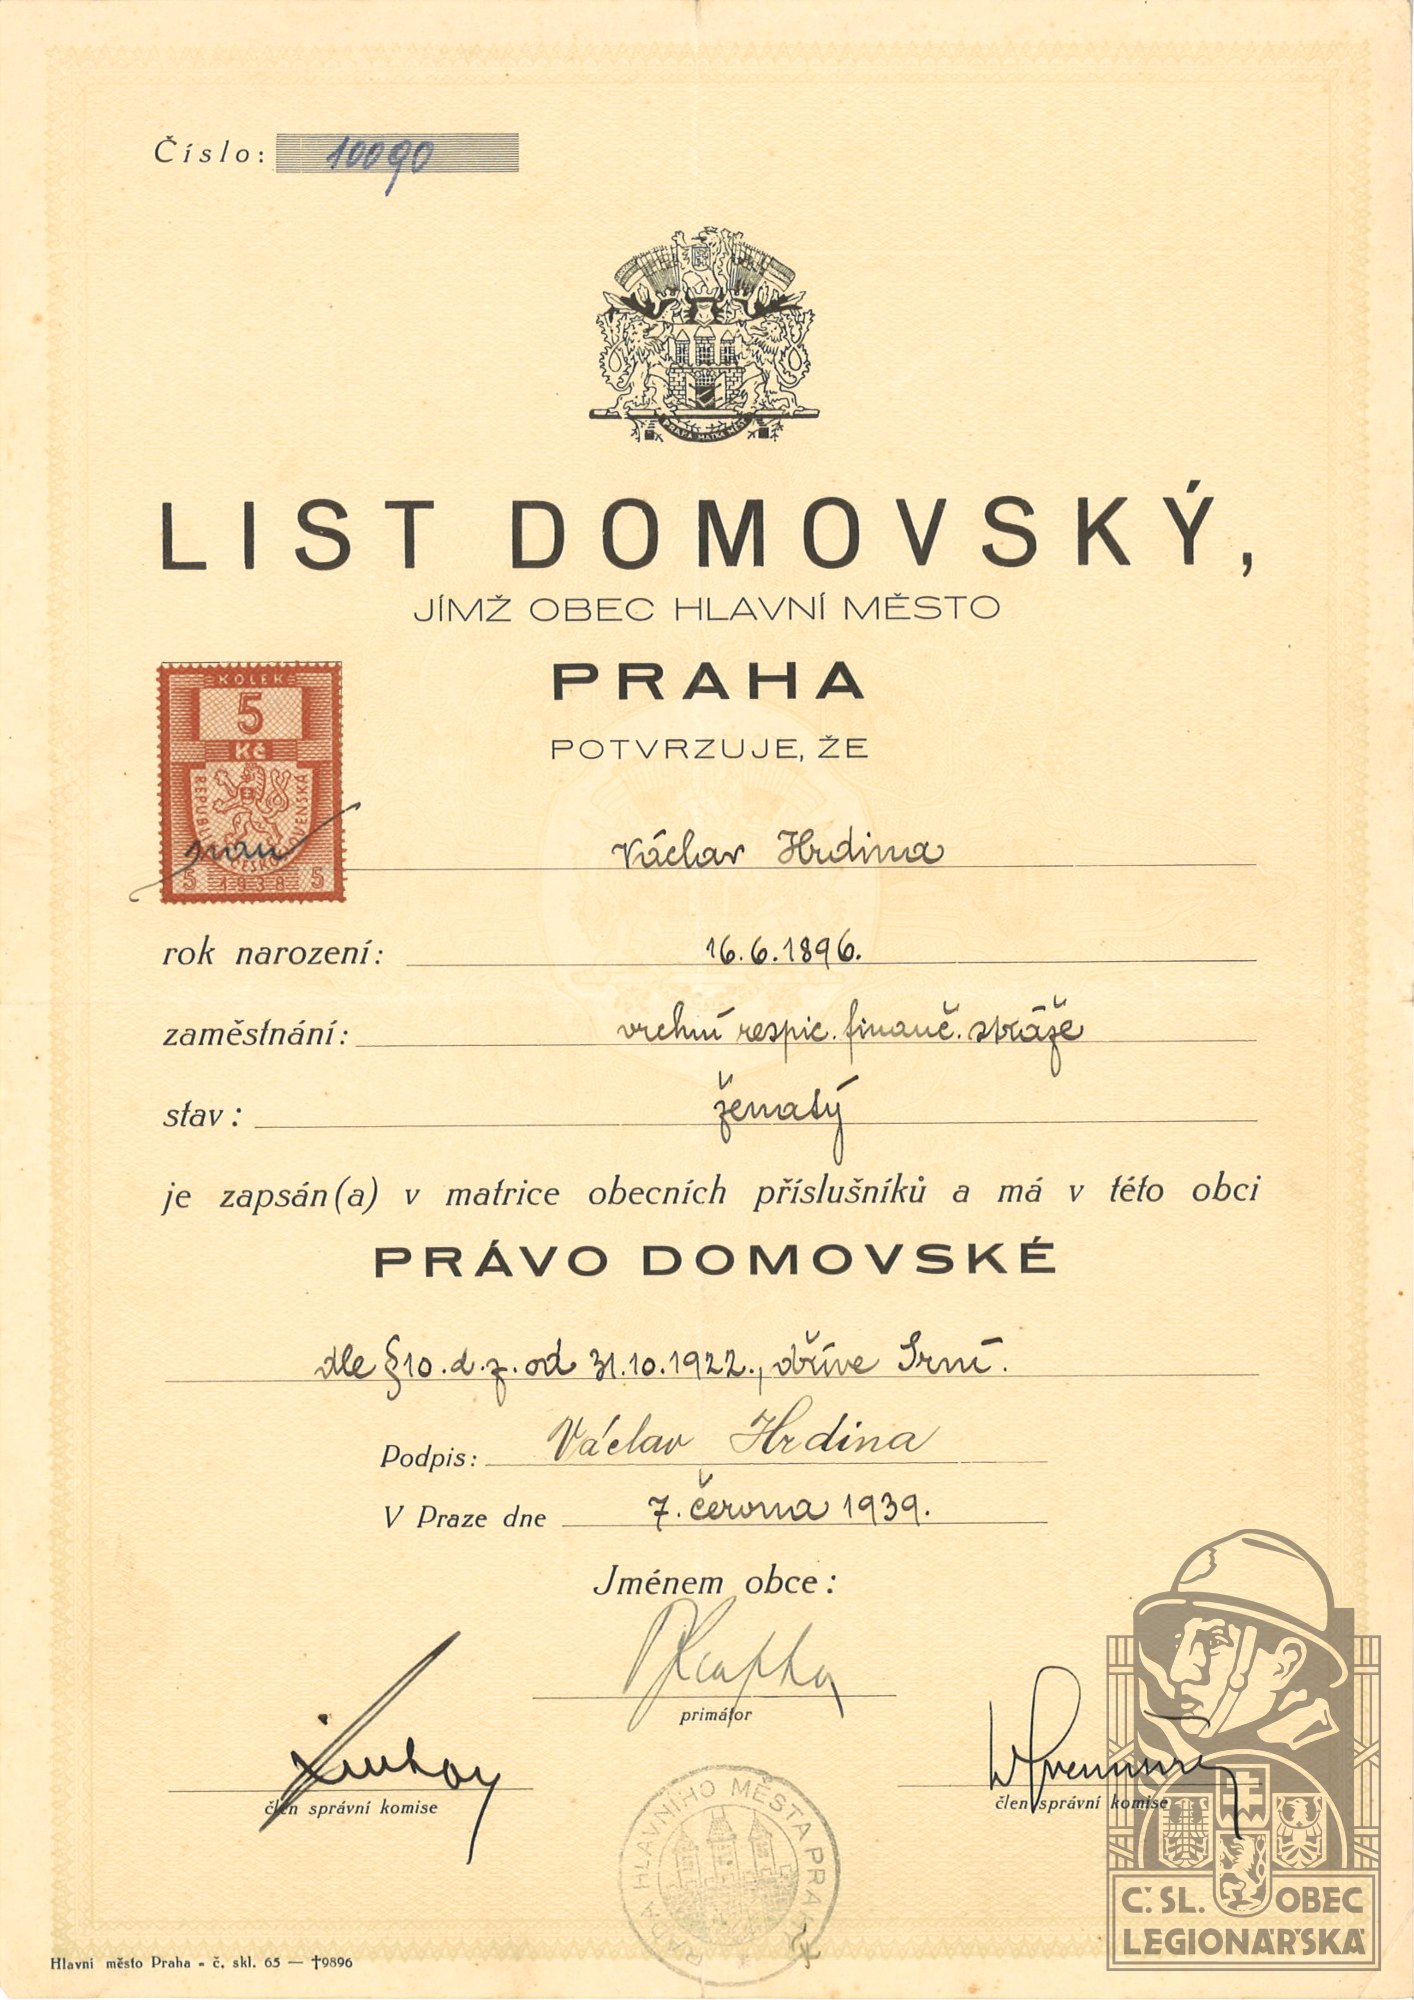 Číslo: 10090
PRAHA MATKA MĚST
LIST DOMOVSKÝ,
JÍMŽ OBEC HLAVNÍ MĚSTO
PRAHA
POTVRZUJE, ŽE
KOLEK
5
Kč
REPUBLIKA ČESKOSLOVENSKÁ
5 1938 5
Václav Hrdina
rok narození: 16.6.1896.
zaměstnání: vrchní respic. finanč. stráže
stav: ženatý
je zapsán(a) v matrice obecních příslušníků a má v této obci
PRÁVO DOMOVSKÉ
dle §10.d.z. od 31.10.1922., dříve Srní.
Podpis: Václav Hrdina
V Praze dne 7. června 1939.
Jménem obce:
primátor
člen správní komise
člen správní komise
RADA HLAVNÍHO MĚSTA PRAHY
Č. SL. OBEC
LEGIONÁŘSKÁ
Hlavní město Praha - č. skl. 65 — †9896